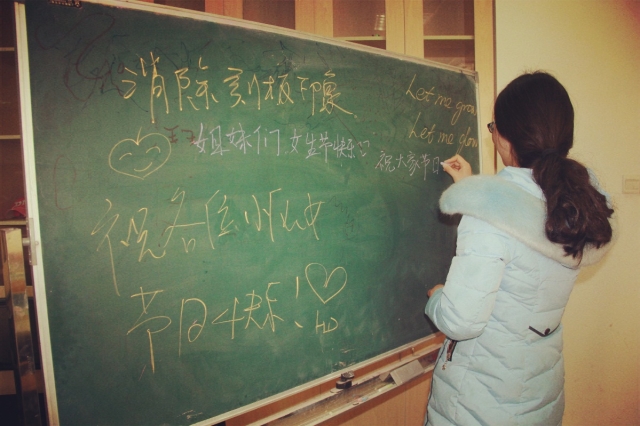 消除刻板印象
Let me grow
Let me glow
姐妹们 女生节快乐!!
祝大家节日
祝各位小仙女
节日快乐!